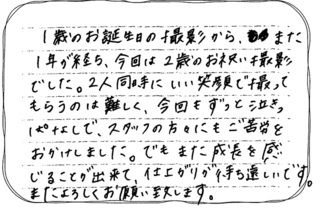 1歳のお誕生日の撮影から、また
1年が経ち、今回は2歳のお祝い撮影
でした。2人同時にいい笑顔で撮って
もらうのは難しく、今回もずっと泣きっ
ぱなしで、スタッフの方々にもご苦労を
おかけしました。でもまた成長を感
じることが出来て、仕上がりが待ち遠しいです。
またよろしくお願い致します。